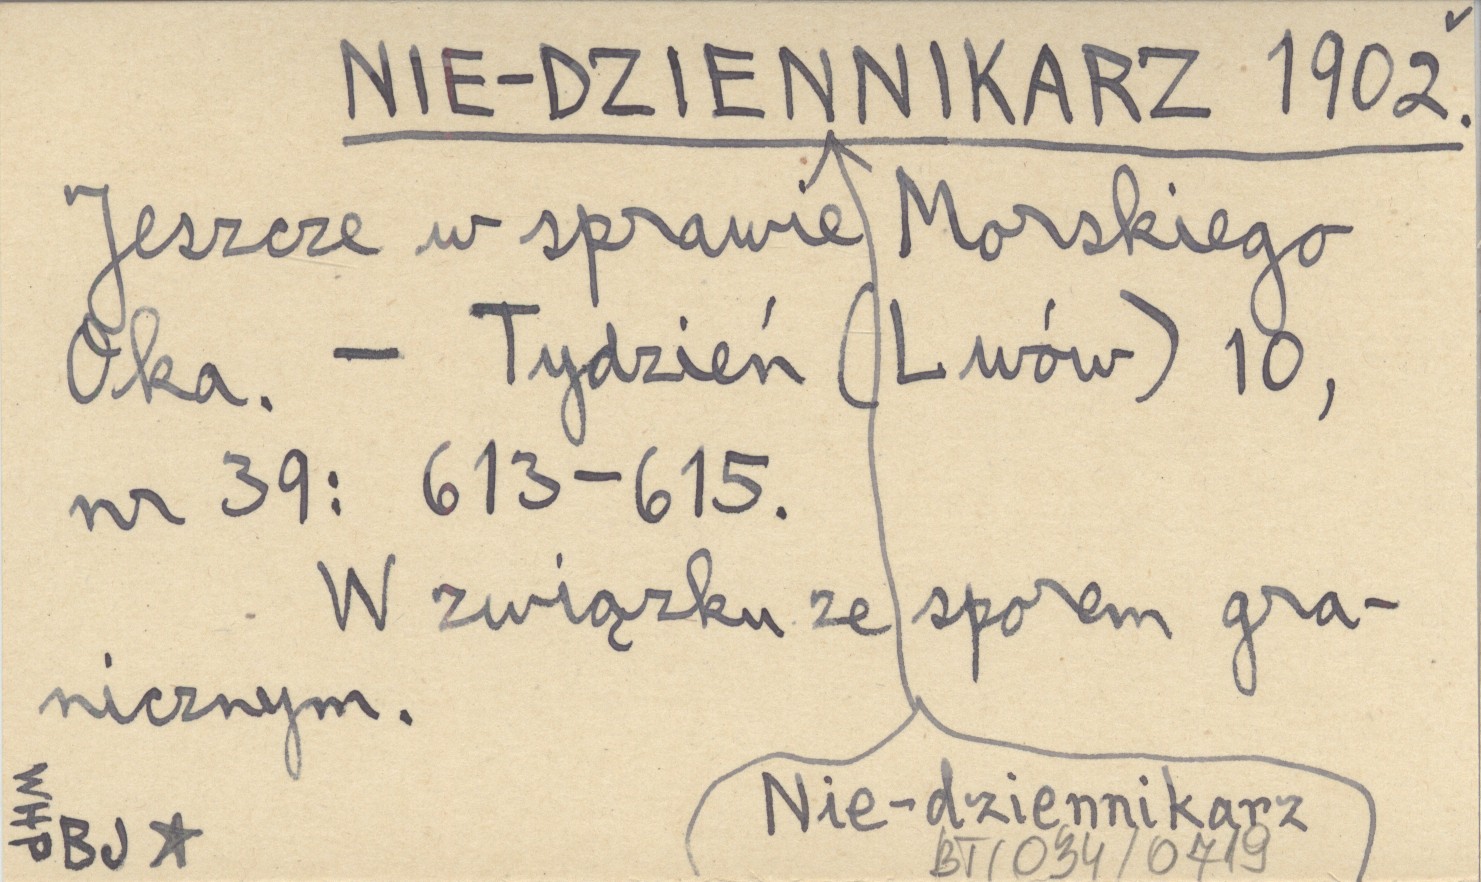 NIE-DZIENNIKARZ 1902.
Jeszcze w sprawie Morskiego
Oka. – Tydzień (Lwów) 10,
nr 39: 613–615.
W związku ze sporem gra-
nicznym.
Nie-dziennikarz
WHP
BJ ★
BT/034/0719